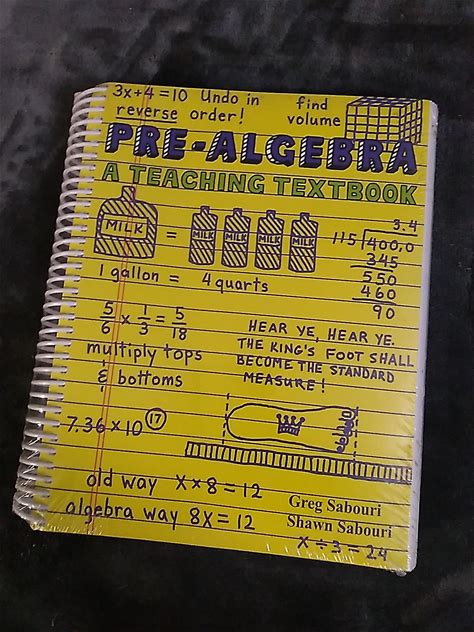 3x+4=10 Undo in
reverse order!
find
volume
PRE-ALGEBRA
A TEACHING TEXTBOOK
MILK = MILK MILK MILK MILK
1 gallon = 4 quarts
3.4
115)400,0
345
550
460
90
5/6 × 1/3 = 5/18
multiply tops
& bottoms
HEAR YE, HEAR YE.
THE KING'S FOOT SHALL
BECOME THE STANDARD
MEASURE!
7.36 × 10 17
old way X × 8 = 12
algebra way 8X = 12
Greg Sabouri
Shawn Sabouri
X ÷ 3 = 24